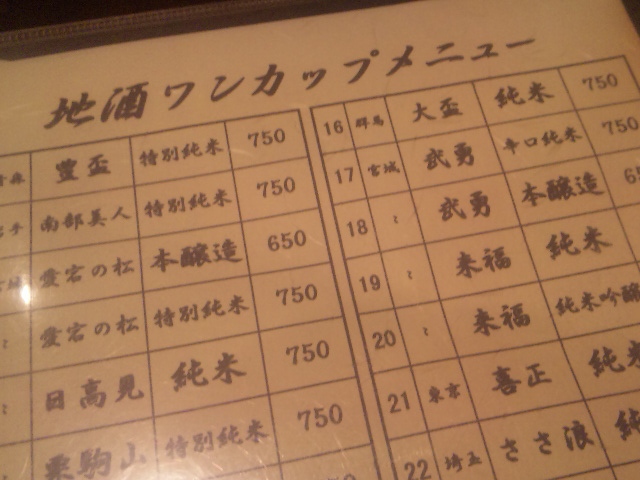 地酒ワンカップメニュー
豊盃 特別純米 750
南部美人 特別純米 750
愛宕の松 本醸造 650
〃 愛宕の松 特別純米 750
〃 日高見 純米 750
栗駒山 特別純米 750
16 群馬 大盃 純米 750
17 宮城 武勇 辛口純米 750
18 〃 武勇 本醸造
19 〃 来福 純米
20 〃 来福 純米吟醸
21 東京 喜正 純米
22 埼玉 ささ浪